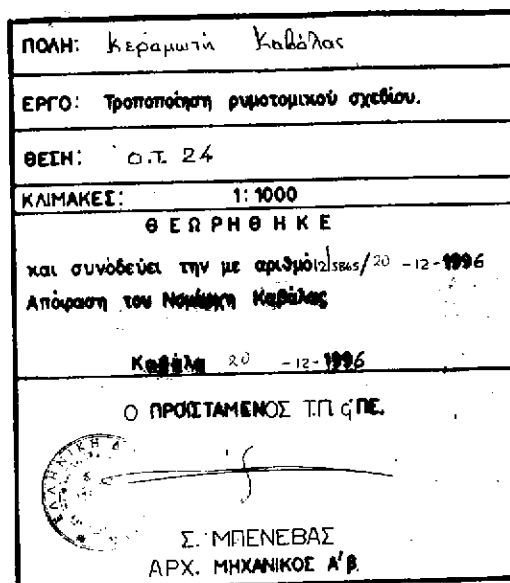 ΠΟΛΗ: Κεραμωτή Καβάλας
ΕΡΓΟ: Τροποποίηση ρυμοτομικού σχεδίου.
ΘΕΣΗ: Ο.Τ. 24
ΚΛΙΜΑΚΕΣ: 1:1000
ΘΕΩΡΗΘΗΚΕ
και συνόδεύει την με αριθμό 12/5865/20-12-1996
Απόφαση του Νομάρχη Καβάλας
Καβάλα 20-12-1996
Ο ΠΡΟΪΣΤΑΜΕΝΟΣ Τ.Π. ΠΕ.
ΕΛΛΗΝΙΚΗ
Σ. ΜΠΕΝΕΒΑΣ
ΑΡΧ. ΜΗΧΑΝΙΚΟΣ Α'β